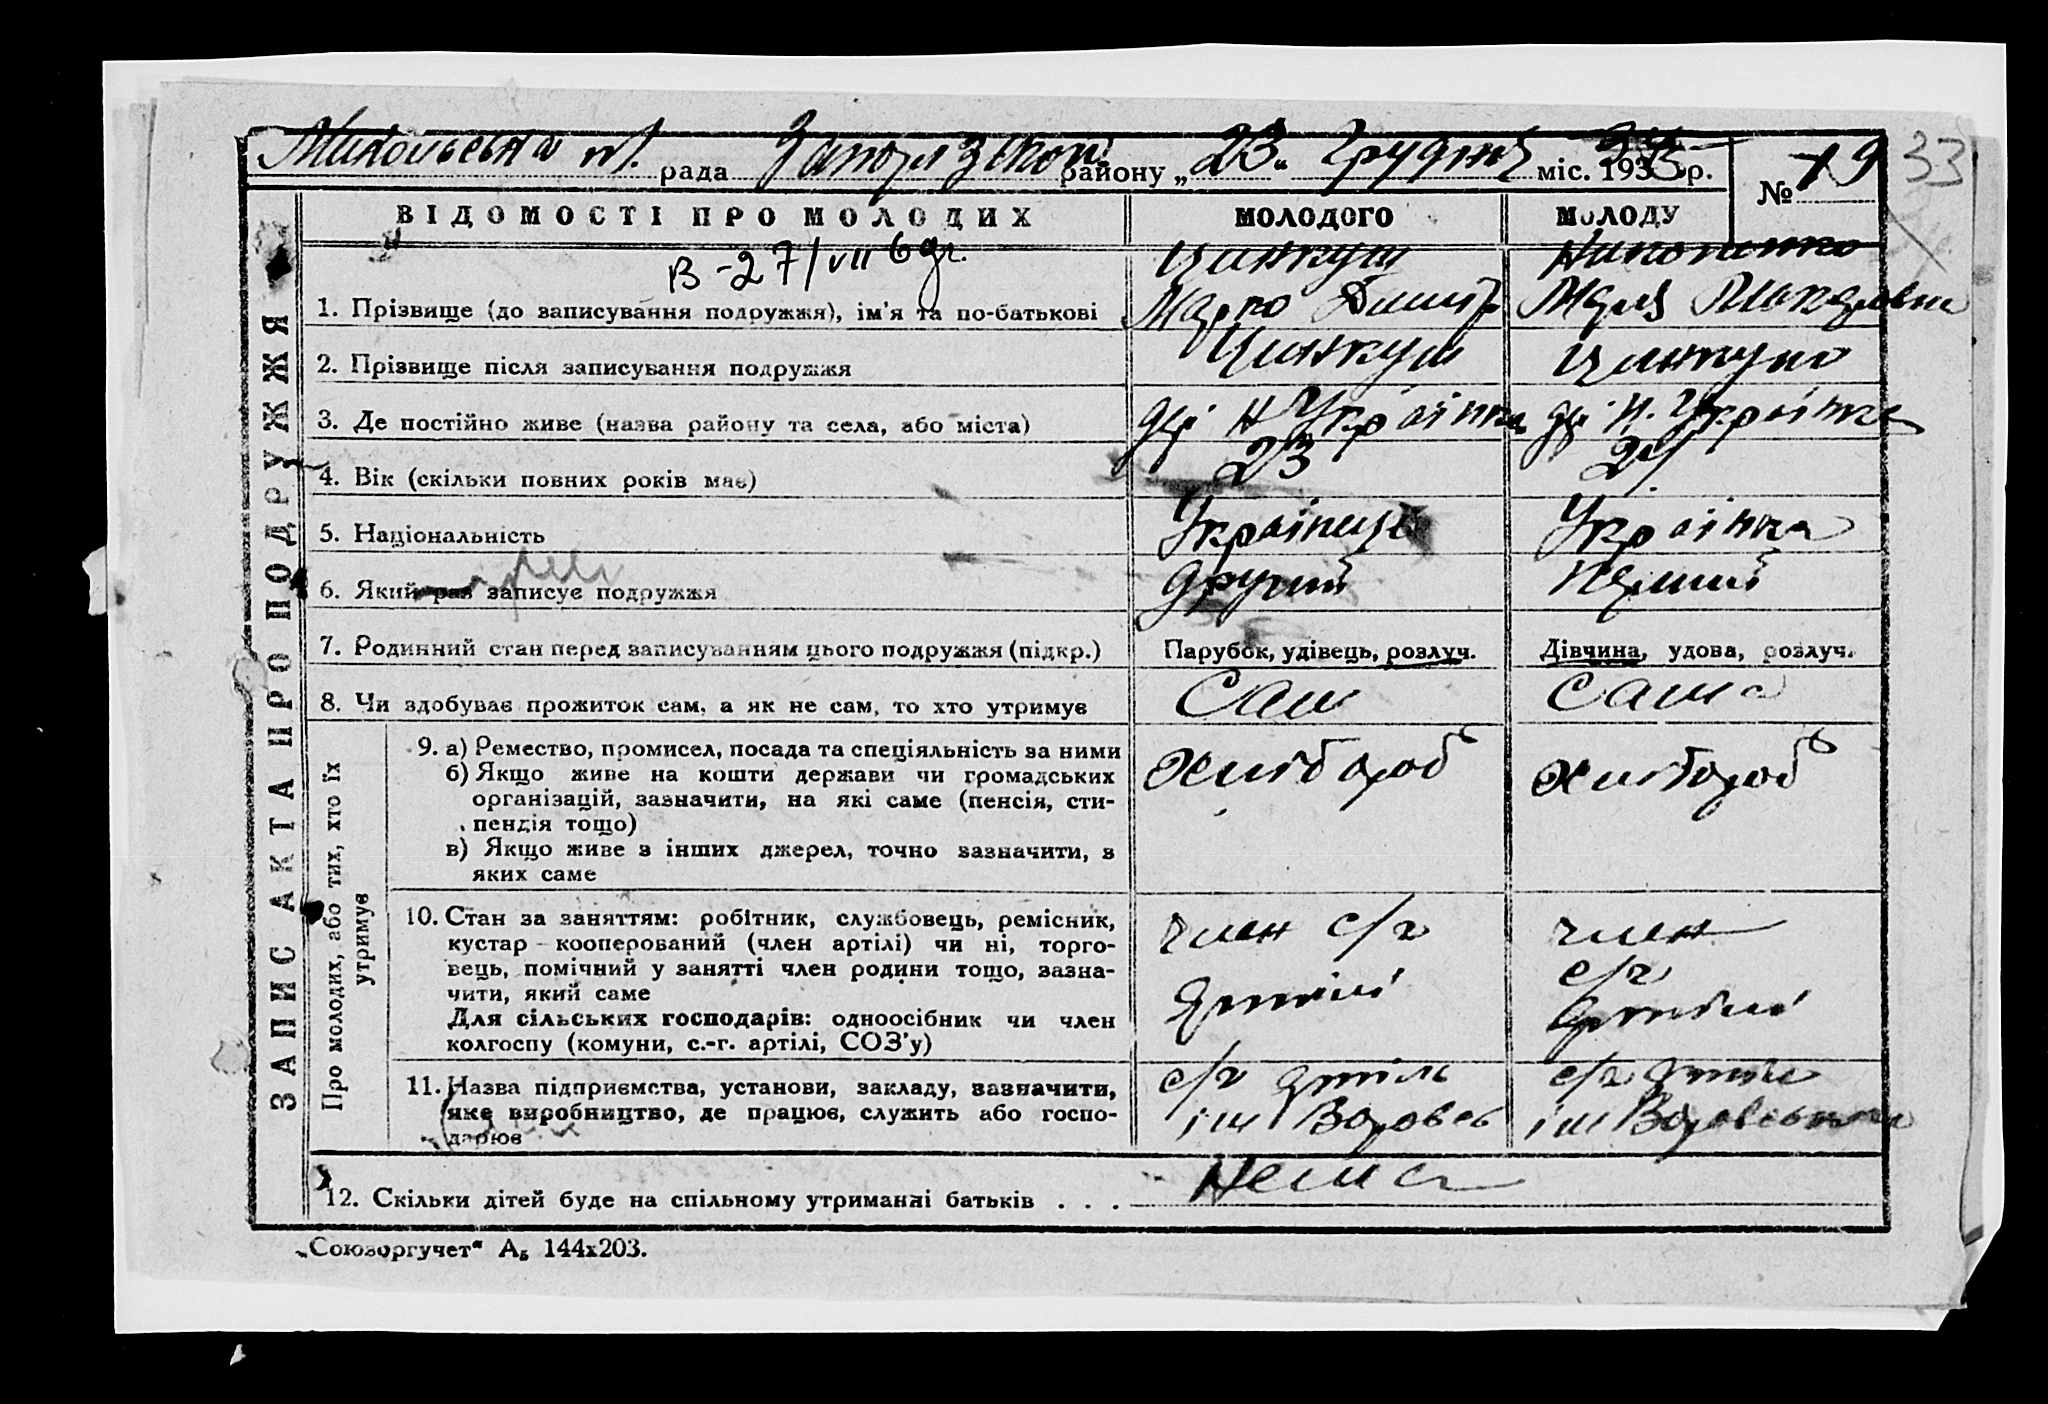 Микольська рада Запорізької району „23“ Грудня міс. 1933 р. № 19
33
ЗАПИС АКТА ПРО ПОДРУЖЖЯ
ВІДОМОСТІ ПРО МОЛОДИХ МОЛОДОГО МОЛОДУ
В-27/VII 6
1. Прізвище (до записування подружжя), ім'я та по-батькові Цинкуш Марко Дмитр
2. Прізвище після записування подружжя Цинкуш
3. Де постійно живе (назва району та села, або міста) Н Українка Н. Українка
4. Вік (скільки повних років має) 23 24
5. Національність Українець Українка
6. Який раз записує подружжя другий перший
7. Родинний стан перед записуванням цього подружжя (підкр.) Парубок, удівець, розлуч. Дівчина, удова, розлуч.
8. Чи здобуває прожиток сам, а як не сам, то хто утримує Сам Сама
Про молодих, або тих, хто їх
утримує
9. а) Ремество, промисел, посада та спеціяльність за ними Хлібороб Хлібороб
б) Якщо живе на кошти держави чи громадських
організацій, зазначити, на які саме (пенсія, сти-
пендія тощо)
в) Якщо живе з інших джерел, точно зазначити, з
яких саме
10. Стан за заняттям: робітник, службовець, ремісник, член с/г член
кустар-кооперований (член артілі) чи ні, торго-
вець, помічний у занятті член родини тощо, зазна- с/г
чити, який саме артілі артілі
Для сільських господарів: одноосібник чи член
колгоспу (комуни, с.-г. артілі, СОЗ'у)
11. Назва підприємства, установи, закладу, зазначити, с/г артіль с/г артіль
яке виробництво, де працює, служить або госпо- ім ім
дарює
12. Скільки дітей буде на спільному утриманні батьків . . . Нема
„Союзоргучет“ А₅ 144x203.